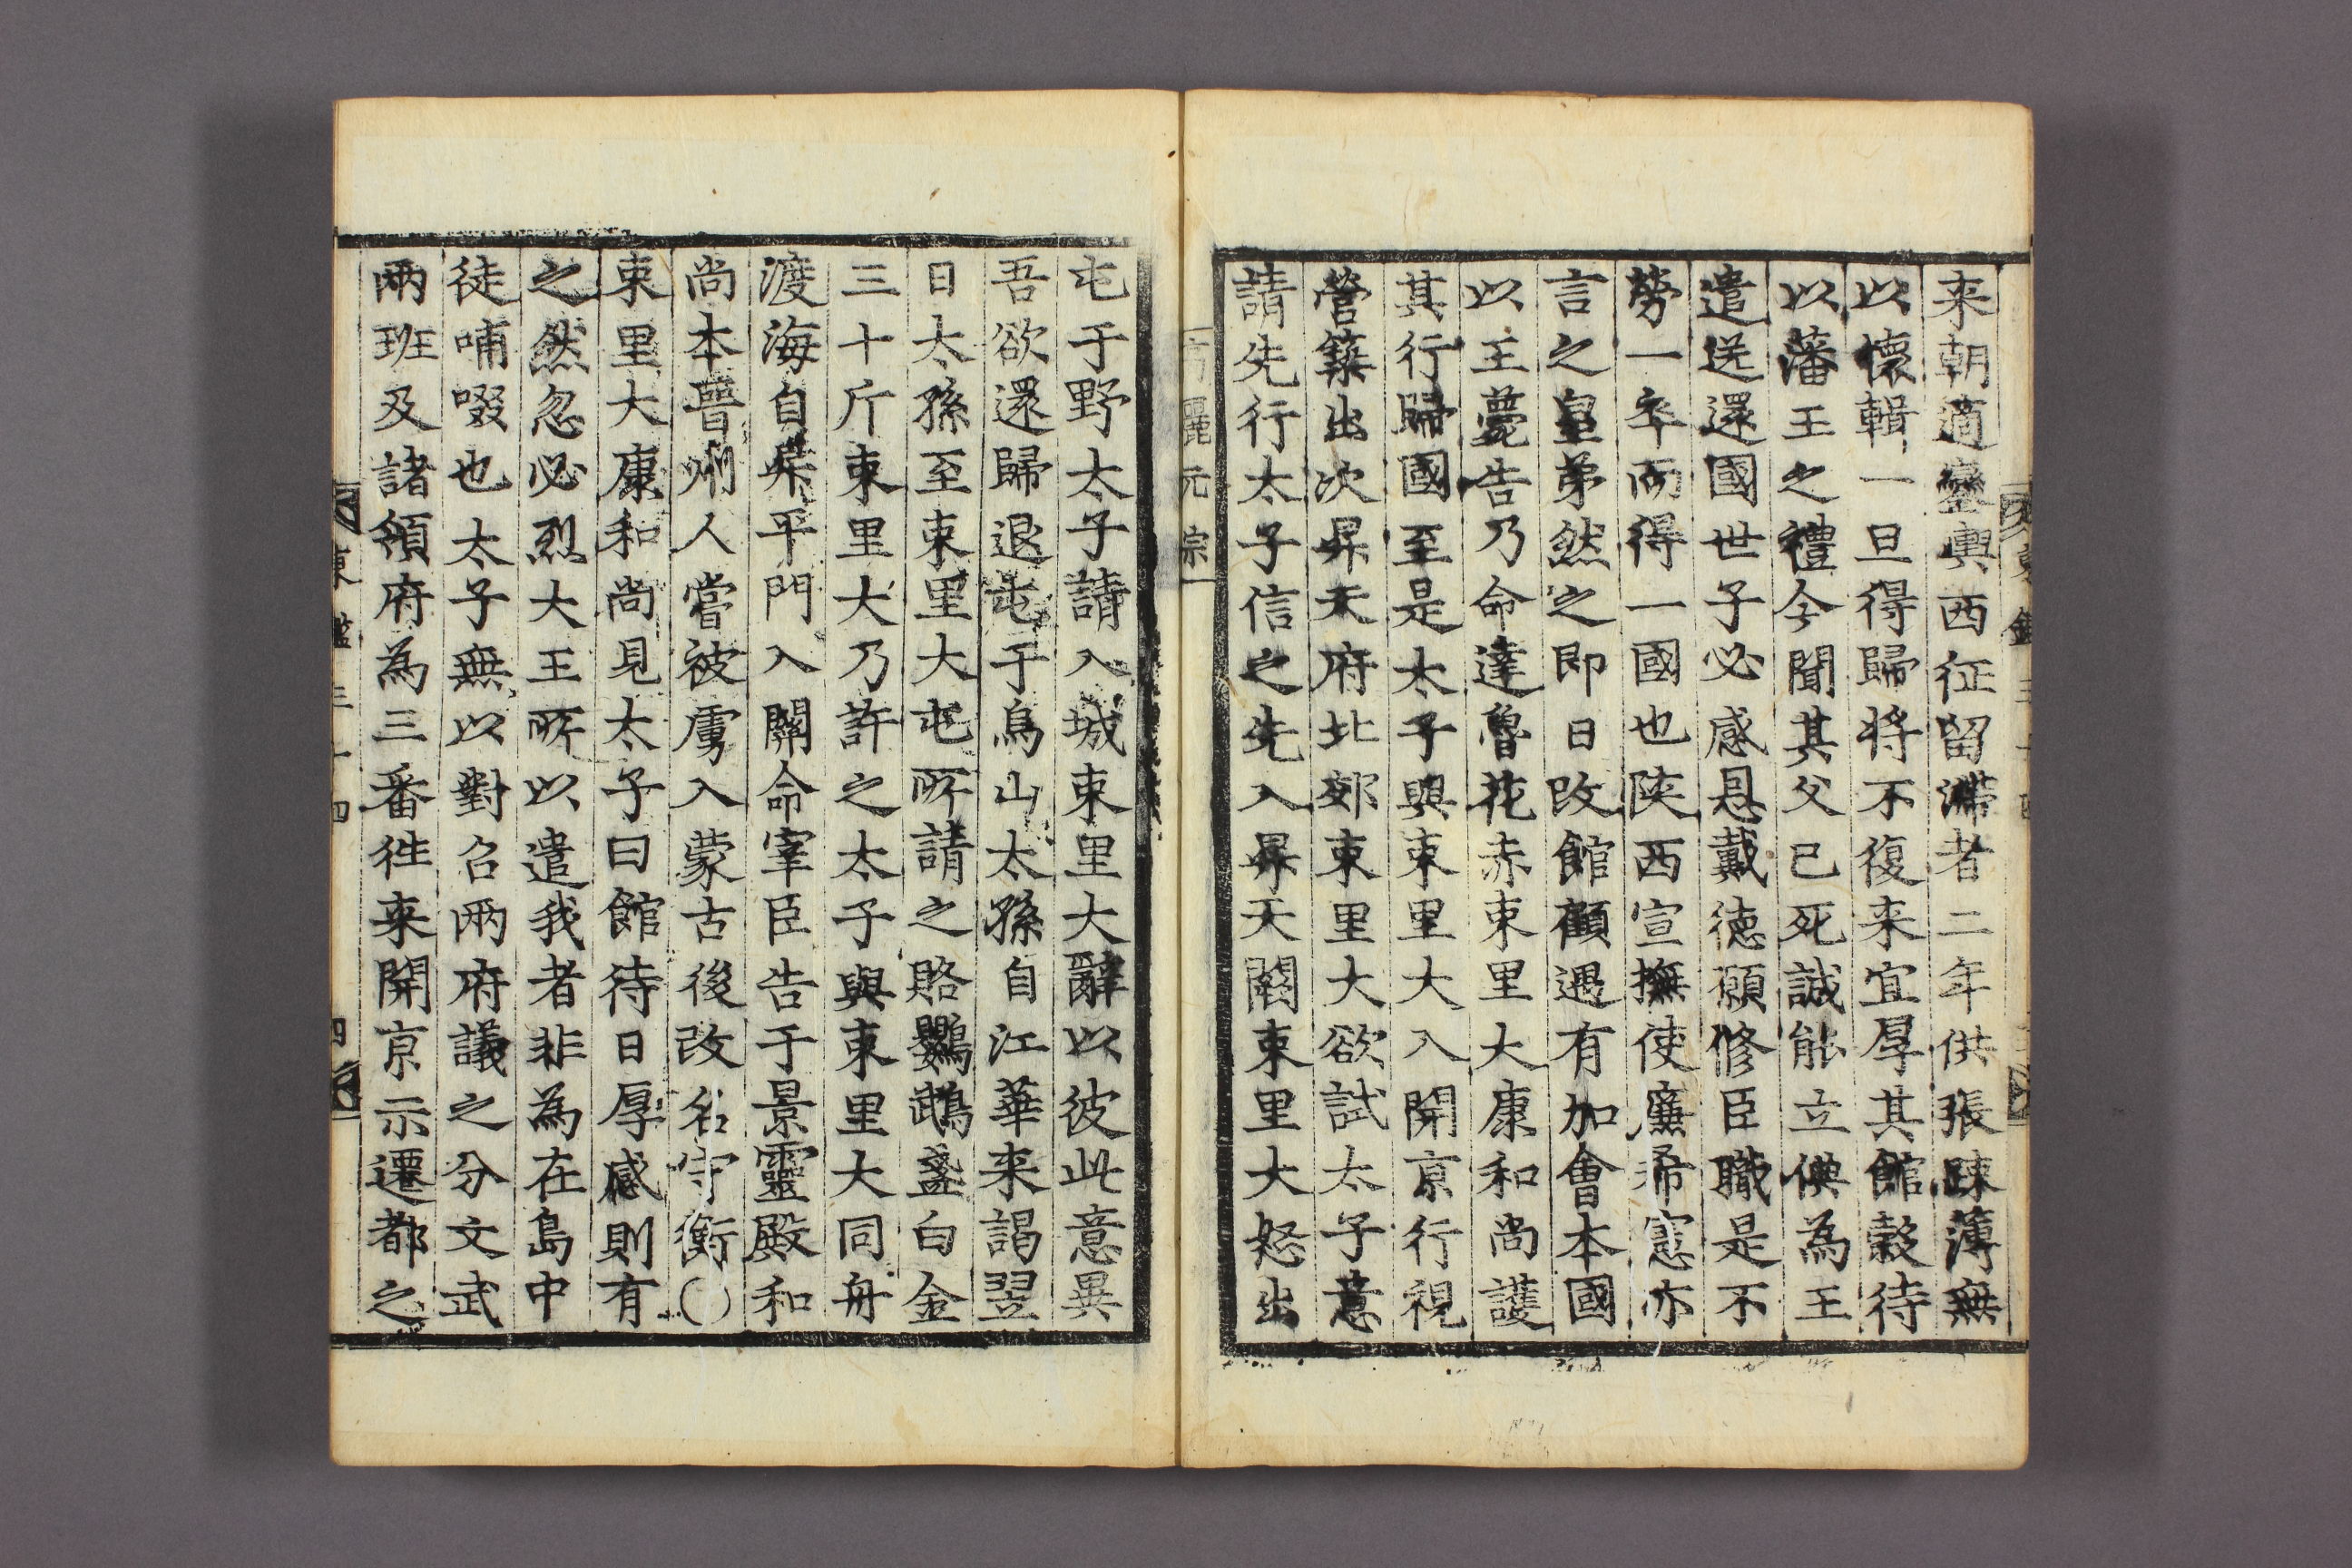 来朝適鑾輿西征留滯者二年供張踈薄無
以懷輯一旦得歸将不復来宜厚其館穀待
以藩王之禮今聞其父已死誠能立倎為王
遣送還國世子必感恩戴德願修臣職是不
勞一卒而得一國也陝西宣撫使廉希憲亦
言之皇弟然之即日改館顧遇有加會本國
以王薨告乃命達魯花赤束里大康和尚護
其行歸國至是太子與束里大入開京行視
營築出次昇天府北郊束里大欲試太子意
請先行太子信之先入昇天闕束里大怒出
高麗元宗
屯于野太子請入城束里大辭以彼此意異
吾欲還歸退屯于烏山太孫自江華来謁翌
日太孫至束里大屯所請之賂鸚鵡盞白金
三十斤束里大乃許之太子與束里大同舟
渡海自昇平門入闕命宰臣告于景靈殿和
尚本晉州人嘗被虜入蒙古後改名守衡〇
束里大康和尚見太子曰館待日厚感則有
之然忽必烈大王所以遣我者非為在島中
徒哺啜也太子無以對召兩府議之分文武
兩班及諸領府為三番徃来開京示遷都之
東鑑三十四 四